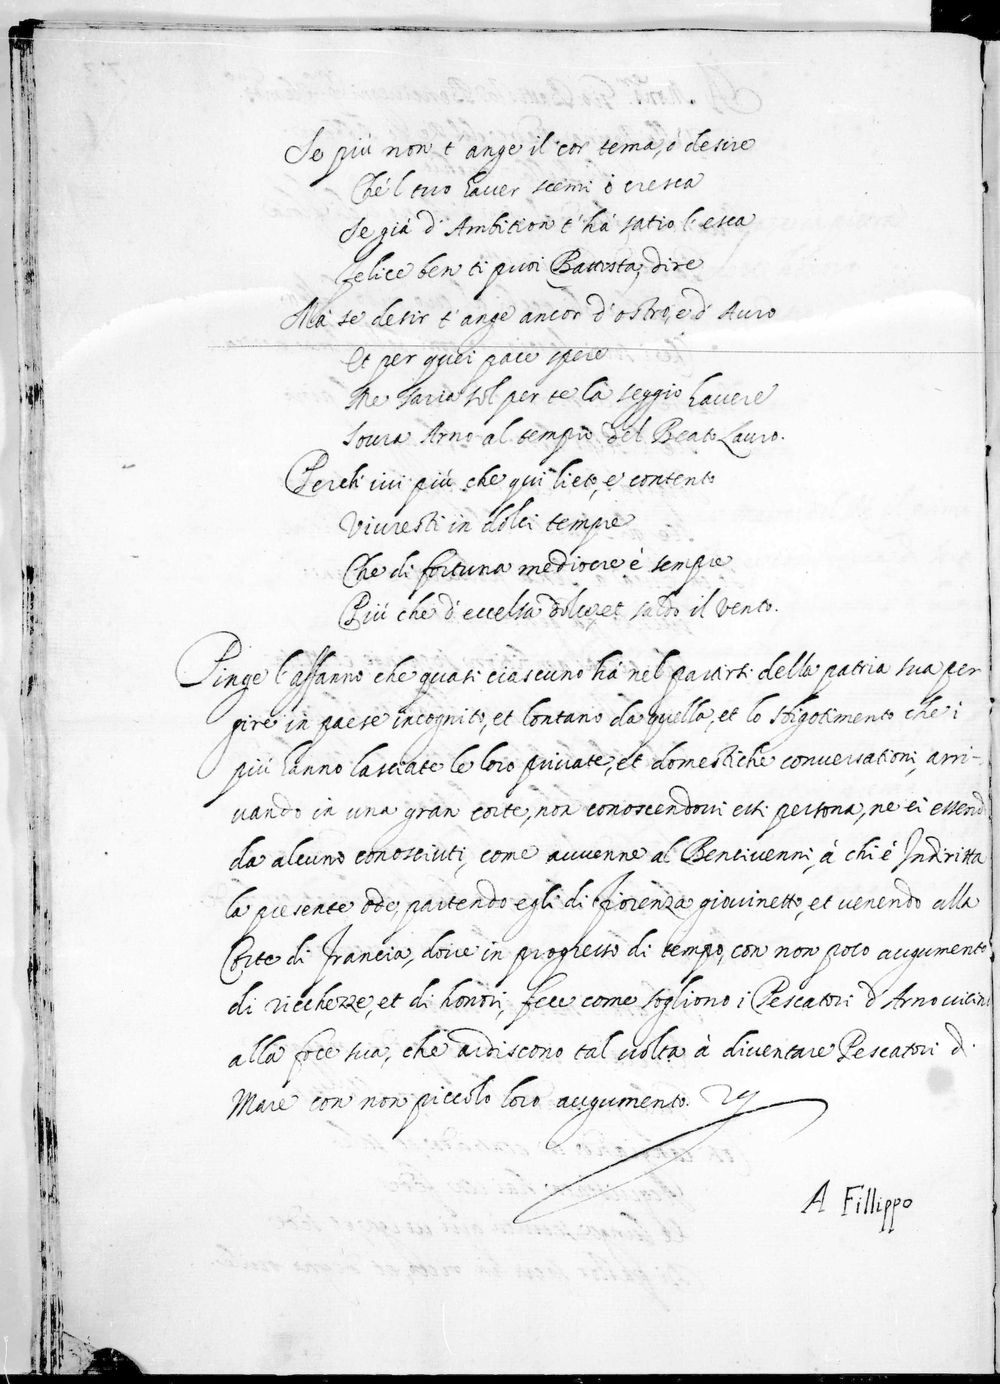 Se più non t'ange il cor tema, ò desire
Ché'l tuo hauer scemi ò cresca
Se già d'Ambition t'há satio l'esca
Felice ben ti puoi Battista dire
Má se desir t'ange ancor d'ostro, e d'Auro
Et per quei pace spere
Me saria sol per te lá seggio hauere
Soura Arno al tempio del Beato Lauro.
Perch' iui più che qui lieto, e contento
Viuresti in dolci tempre
Che di fortuna mediocre è sempre
Più che d'eccelsa dolce, et saldo il vento.
Pinge l'affanno che quasi ciascuno há nel partirsi della patria sua per
gire in paese incognito, et lontano da quella, et lo sbigotimento che i
più hanno lasciate le loro priuate, et domestiche conuersationi, arri-
uando in una gran corte, non conoscendoui essi persona, ne ei essend
da alcuno conosciuti, come auuenne al Bentiuenni, á chi é Indiritta
la presente ode, partendo egli di Fiorenza giouinetto, et uenendo alla
Corte di Francia, doue in progresso di tempo, con non poco augumento
di ricchezze, et di honori, fece come sogliono i Pescatori d'Arno uicini
alla foce sua, che ardiscono tal uolta á diuentare Pescatori di
Mare con non piccolo loro augumento.
A Fillippo